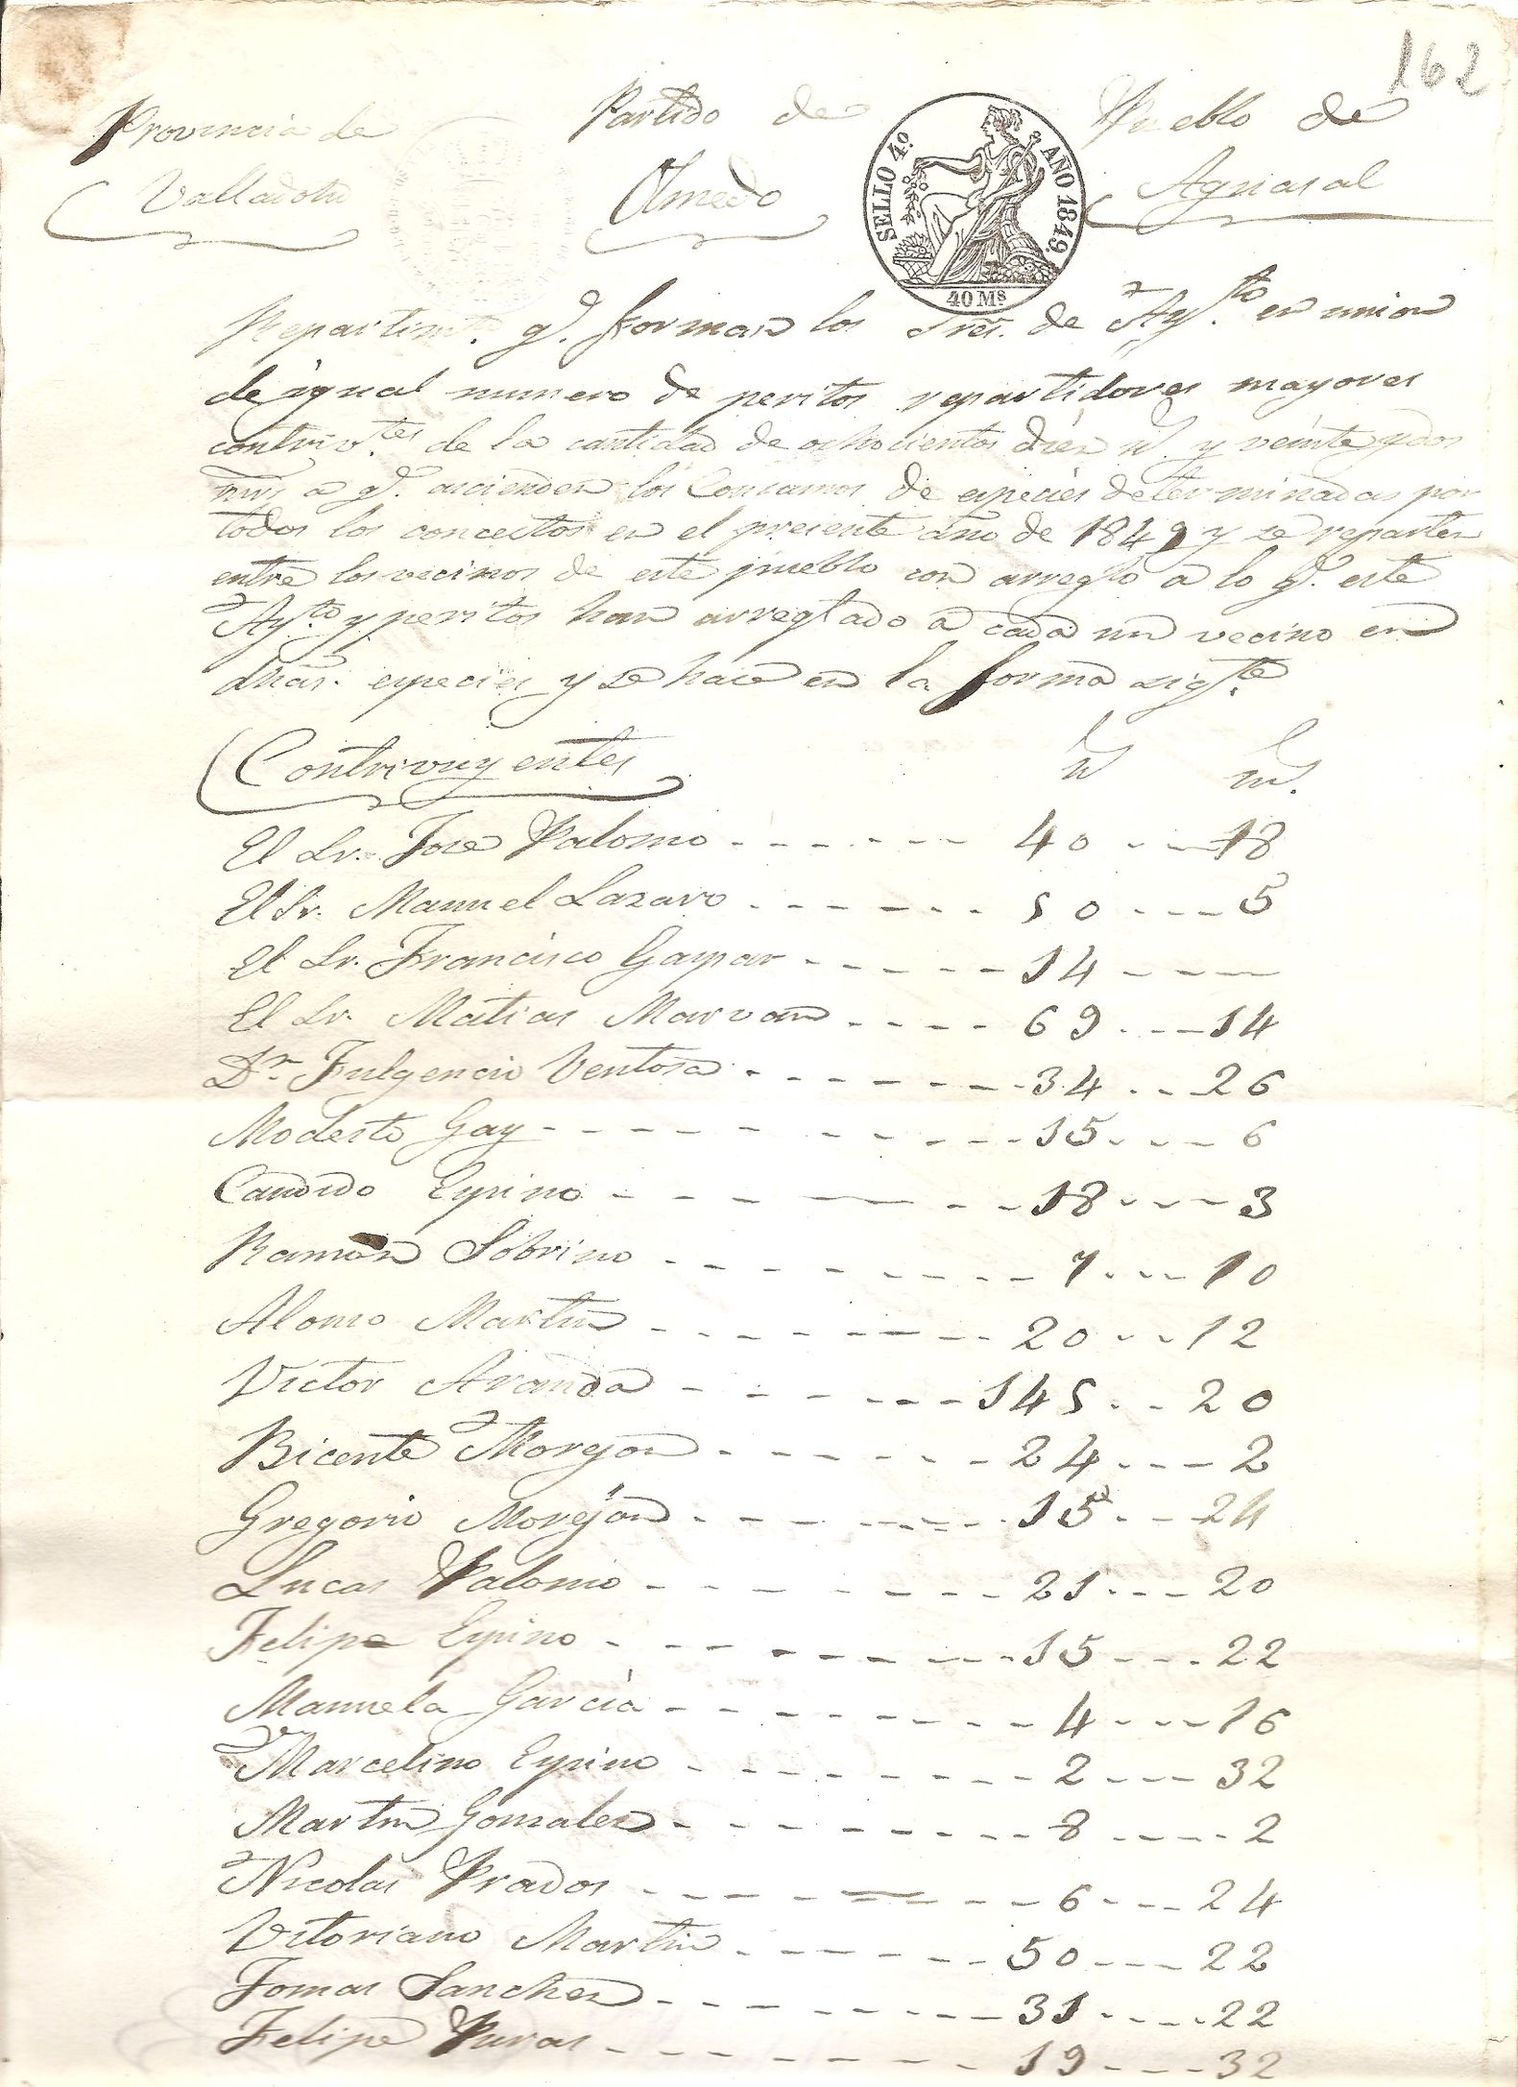 162
Provincia de Partido de Pueblo de
Valladolid Olmedo Aguasal
SELLO 4º AÑO 1849.
40 Ms
Repartimto. q.e forman los Sres. de Ay.to en union
de igual numero de peritos repartidores mayores
contriv.tes de la cantidad de ochocientos diez rs. y veinte y dos
mrs a q.e ascienden los Consumos de especies determinadas por
todos los conceptos en el presente año de 1849 y se reparten
entre los vecinos de este pueblo con arreglo a lo q.e este
Ay.to y peritos han arreglado a cada un vecino en
dhas. especies y se hace en la forma sig.te
Contrivuyentes rs ms.
El Sr. Jose Palomo 40 18
El Sr. Manuel Lazaro 50 5
El Sr. Francisco Gaspar 14
El Sr. Matias Marvan 69 14
Dn. Fulgencio Ventosa 34 26
Modesto Gay 15 6
Candido Espino 18 3
Ramon Sobrino 7 10
Alonso Martin 20 12
Victor Aranda 145 20
Bicente Morejon 24 2
Gregorio Morejon 15 24
Lucas Palomo 21 20
Felipe Espino 15 22
Manuela Garcia 4 16
Marcelino Espino 2 32
Martin Gonzalez 8 2
Nicolas Prados 6 24
Vitoriano Martin 50 22
Tomas Sanchez 31 22
Felipe Puras 19 32